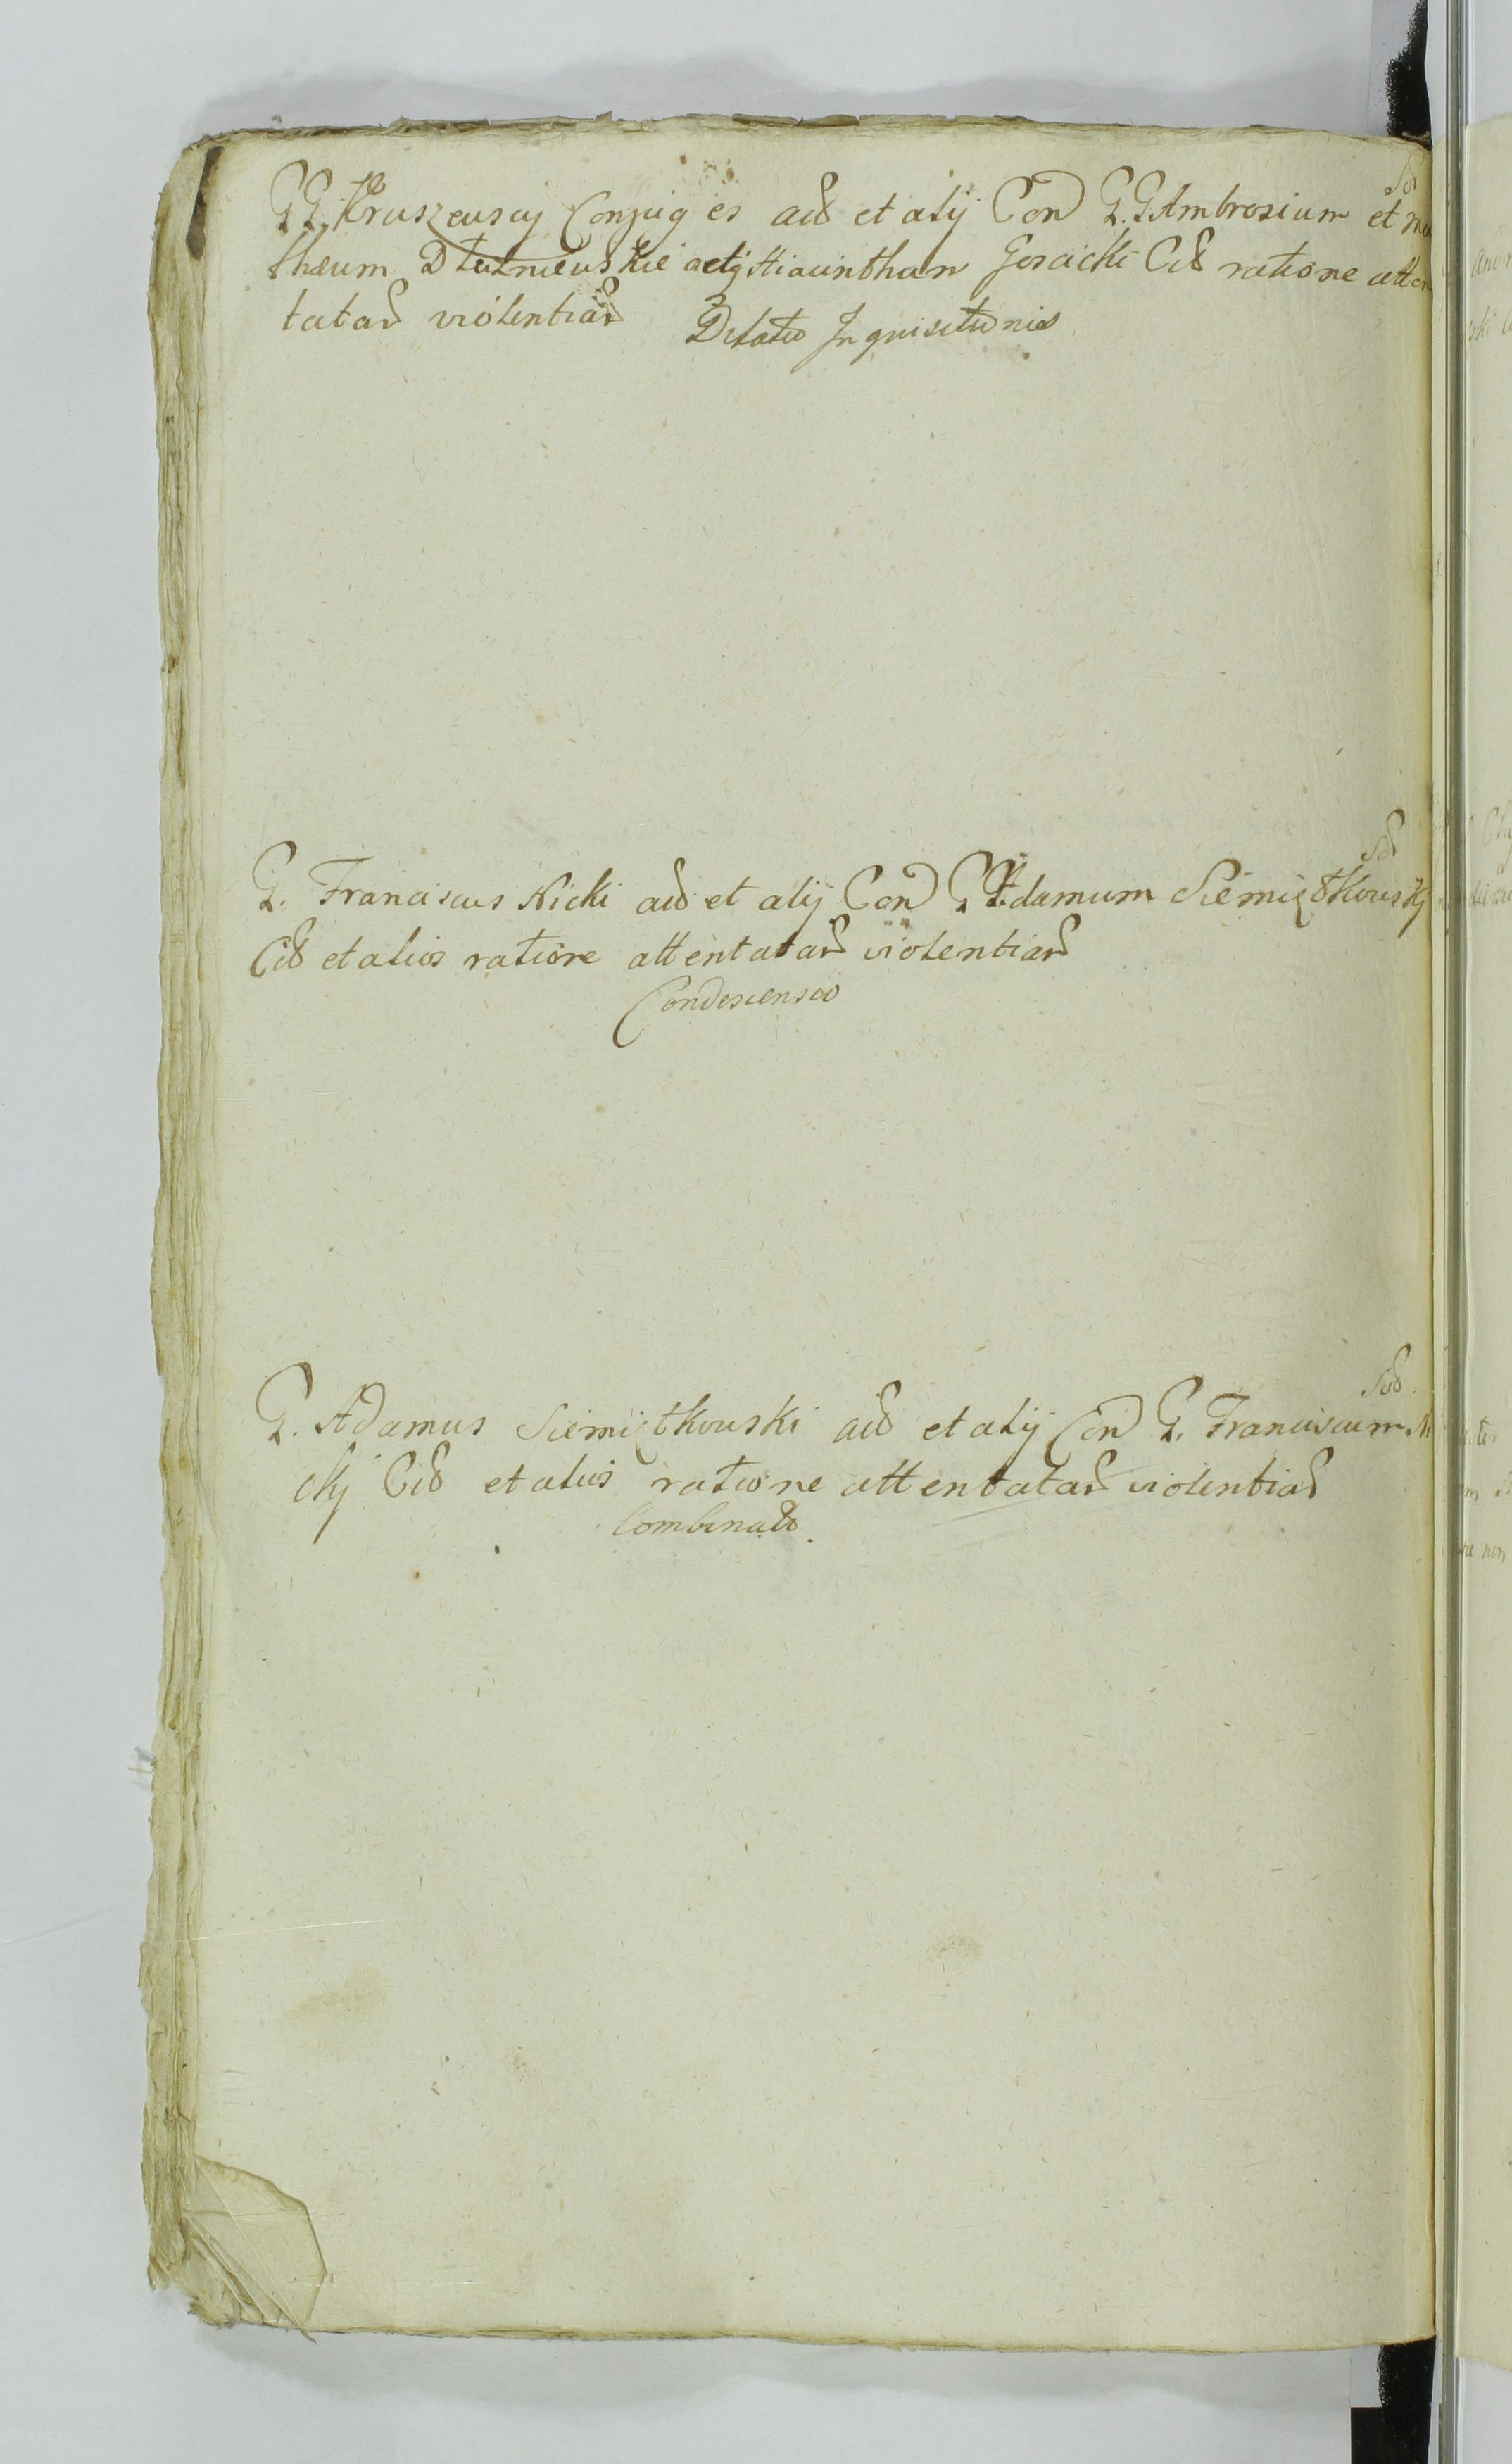 Sol
GG. Kruszewscy Conjuges act et alij Con G.G. Ambrosium et Ma
thæum Dłużniewskie ac Hiacinthum Goscicki Cit ratione atten
tatar violentiar
Dilatio Inquisitionis
Sol
G. Franciscus Nicki act et alij Con G. Adamum Siemiątkowskj
Cit et alios ratione attentatar violentiar
Condescensio
Sol
G. Adamus Siemiątkowski act et alij Con G. Franciscum Ni
ckj Cit et alios ratione attentatar violentiar
Combinatio